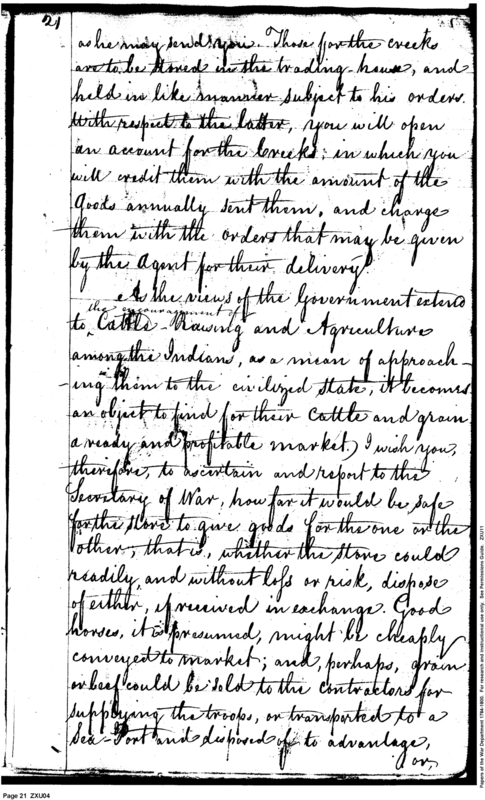 21
as he may send you. Those for the creeks
are to be stored in the trading house, and
held in like manner subject to his orders.
With respect to the latter, you will open
an account for the Creeks; in which you
will credit them with the amount of the
Goods annually sent them, and charge
them with the orders that may be given
by the Agent for their delivery.
As the views of the Government extend
the encouragement of
to Cattle-Raising and Agriculture
among the Indians, as a mean of approach-
-ing them to the civilized state, it becomes
an object to find for their Cattle and grain
a ready and profitable market.) I wish you,
therefore, to ascertain and report to the
Secretary of War, how far it would be safe
for the store to give goods for the one or the
other; that is, whether the store could
readily, and without loss or risk, dispose
of either, if received in exchange. Good
horses, it is presumed, might be cheaply
conveyed to market; and, perhaps, grain
or beef could be sold to the contractors for
supplying the troops, or transported to a
Sea-Port and disposed of to advantage,
or,
Page 21 ZXU04
Papers of the War Department 1784-1800. For research and instructional use only. See Permissions Guide. ZXU11